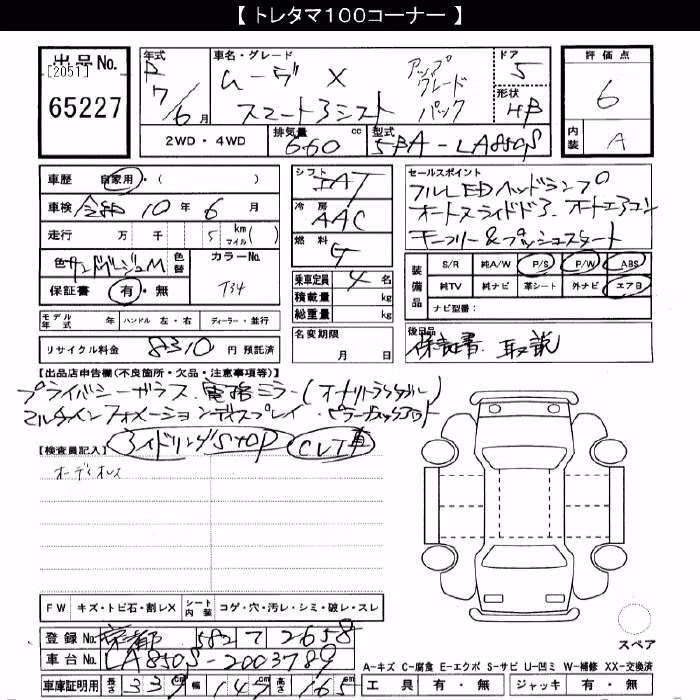 【 トレタマ100コーナー 】
出品No.
[2051]
65227
年式
R
7/6月
車名・グレード
ムーヴ X
スマートアシスト
アップグレードパック
ドア
5
形状
HB
評価点
6
内装
A
2WD・4WD
排気量
660 cc
型式
5BA-LA850S
車歴 自家用・( )
車検 令和 10年 6月
走行 万 千 5 km マイル( )
色 サンドベージュM
色替
カラーNo.
T34
保証書 有・無
シフト
冷房
AAC
燃料
G
乗車定員 4 名
積載量 kg
総重量 kg
名変期限
月 日
セールスポイント
フルLEDヘッドランプ
オートスライドドア、オートエアコン
キーフリー&プッシュスタート
装備品
S/R 純A/W P/S P/W ABS
純TV 純ナビ 革シート 外ナビ エアB
ナビ型番:
モデル年式 年 ハンドル 左・右 ディーラー・並行
リサイクル料金 8310 円 預託済
後日品
保証書、取説
【出品店申告欄(不良箇所・欠品・注意事項等)】
プライバシーガラス、電格ミラー(オートリトラクタブル)
マルチインフォメーションディスプレイ・
アイドリングSTOP CVT車
【検査員記入】
オーディオレス
FW キズ・トビ石・割レX シート内装 コゲ・穴・汚レ・シミ・破レ・スレ
登録No. 京都 582 7 2658
車台No. LA850S-2003789
車庫証明用 長さ 339 cm 幅 147 cm 高さ 165 cm
スペア
A-キズ C-腐食 E-エクボ S-サビ U-凹ミ W-補修 XX-交換済
工具 有・無 ジャッキ 有・無